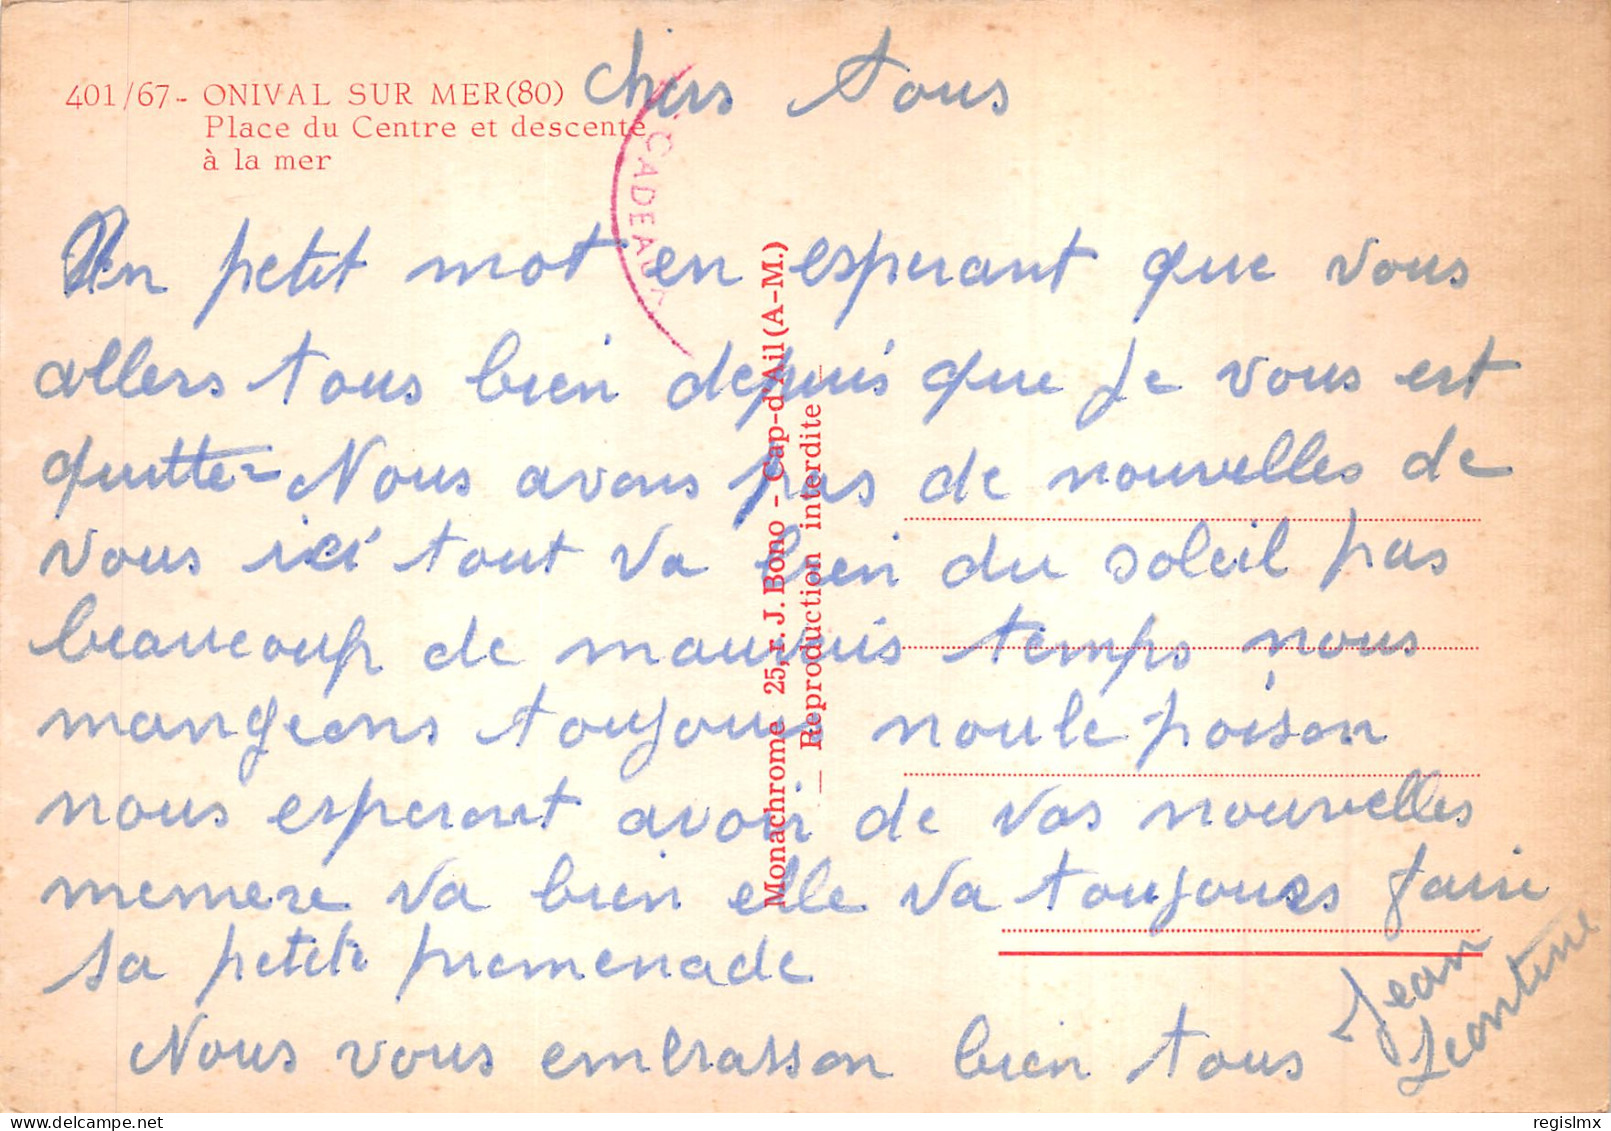 401/67- ONIVAL SUR MER(80)
Place du Centre et descente
à la mer
CADEAUX
chers tous
Un petit mot en esperant que vous
allers tous bien depuis que je vous est
quitte - Nous avons pas de nouvelles de
vous ici tout va bien du soleil pas
beaucoup de mauvais temps nous
mangeons toujours moule poison
nous esperont avoir de vos nouvelles
memere va bien elle va toujours faire
sa petite promenade
Nous vous embrasson bien tous
Jean
Leontine
Monachrome 25, r. J. Bono - Cap-d'Ail (A-M.)
_ Reproduction interdite _
delcampe.net
regislmx